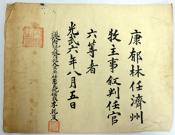 康郁林任濟州
牧主事敍判任官
六等者
光武六年八月五日